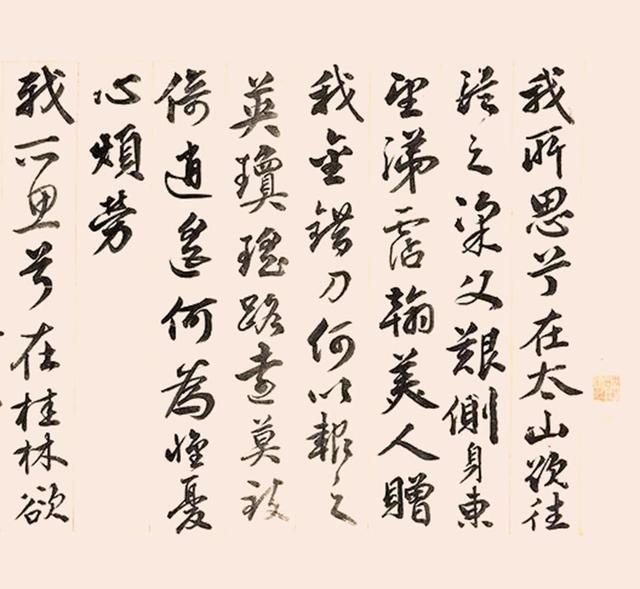 我所思兮在太山欲往
從之梁父艱側身東
望涕霑翰美人贈
我金錯刀何以報之
英瓊瑤路遠莫致
倚逍遙何為懷憂
心煩勞
我所思兮在桂林欲